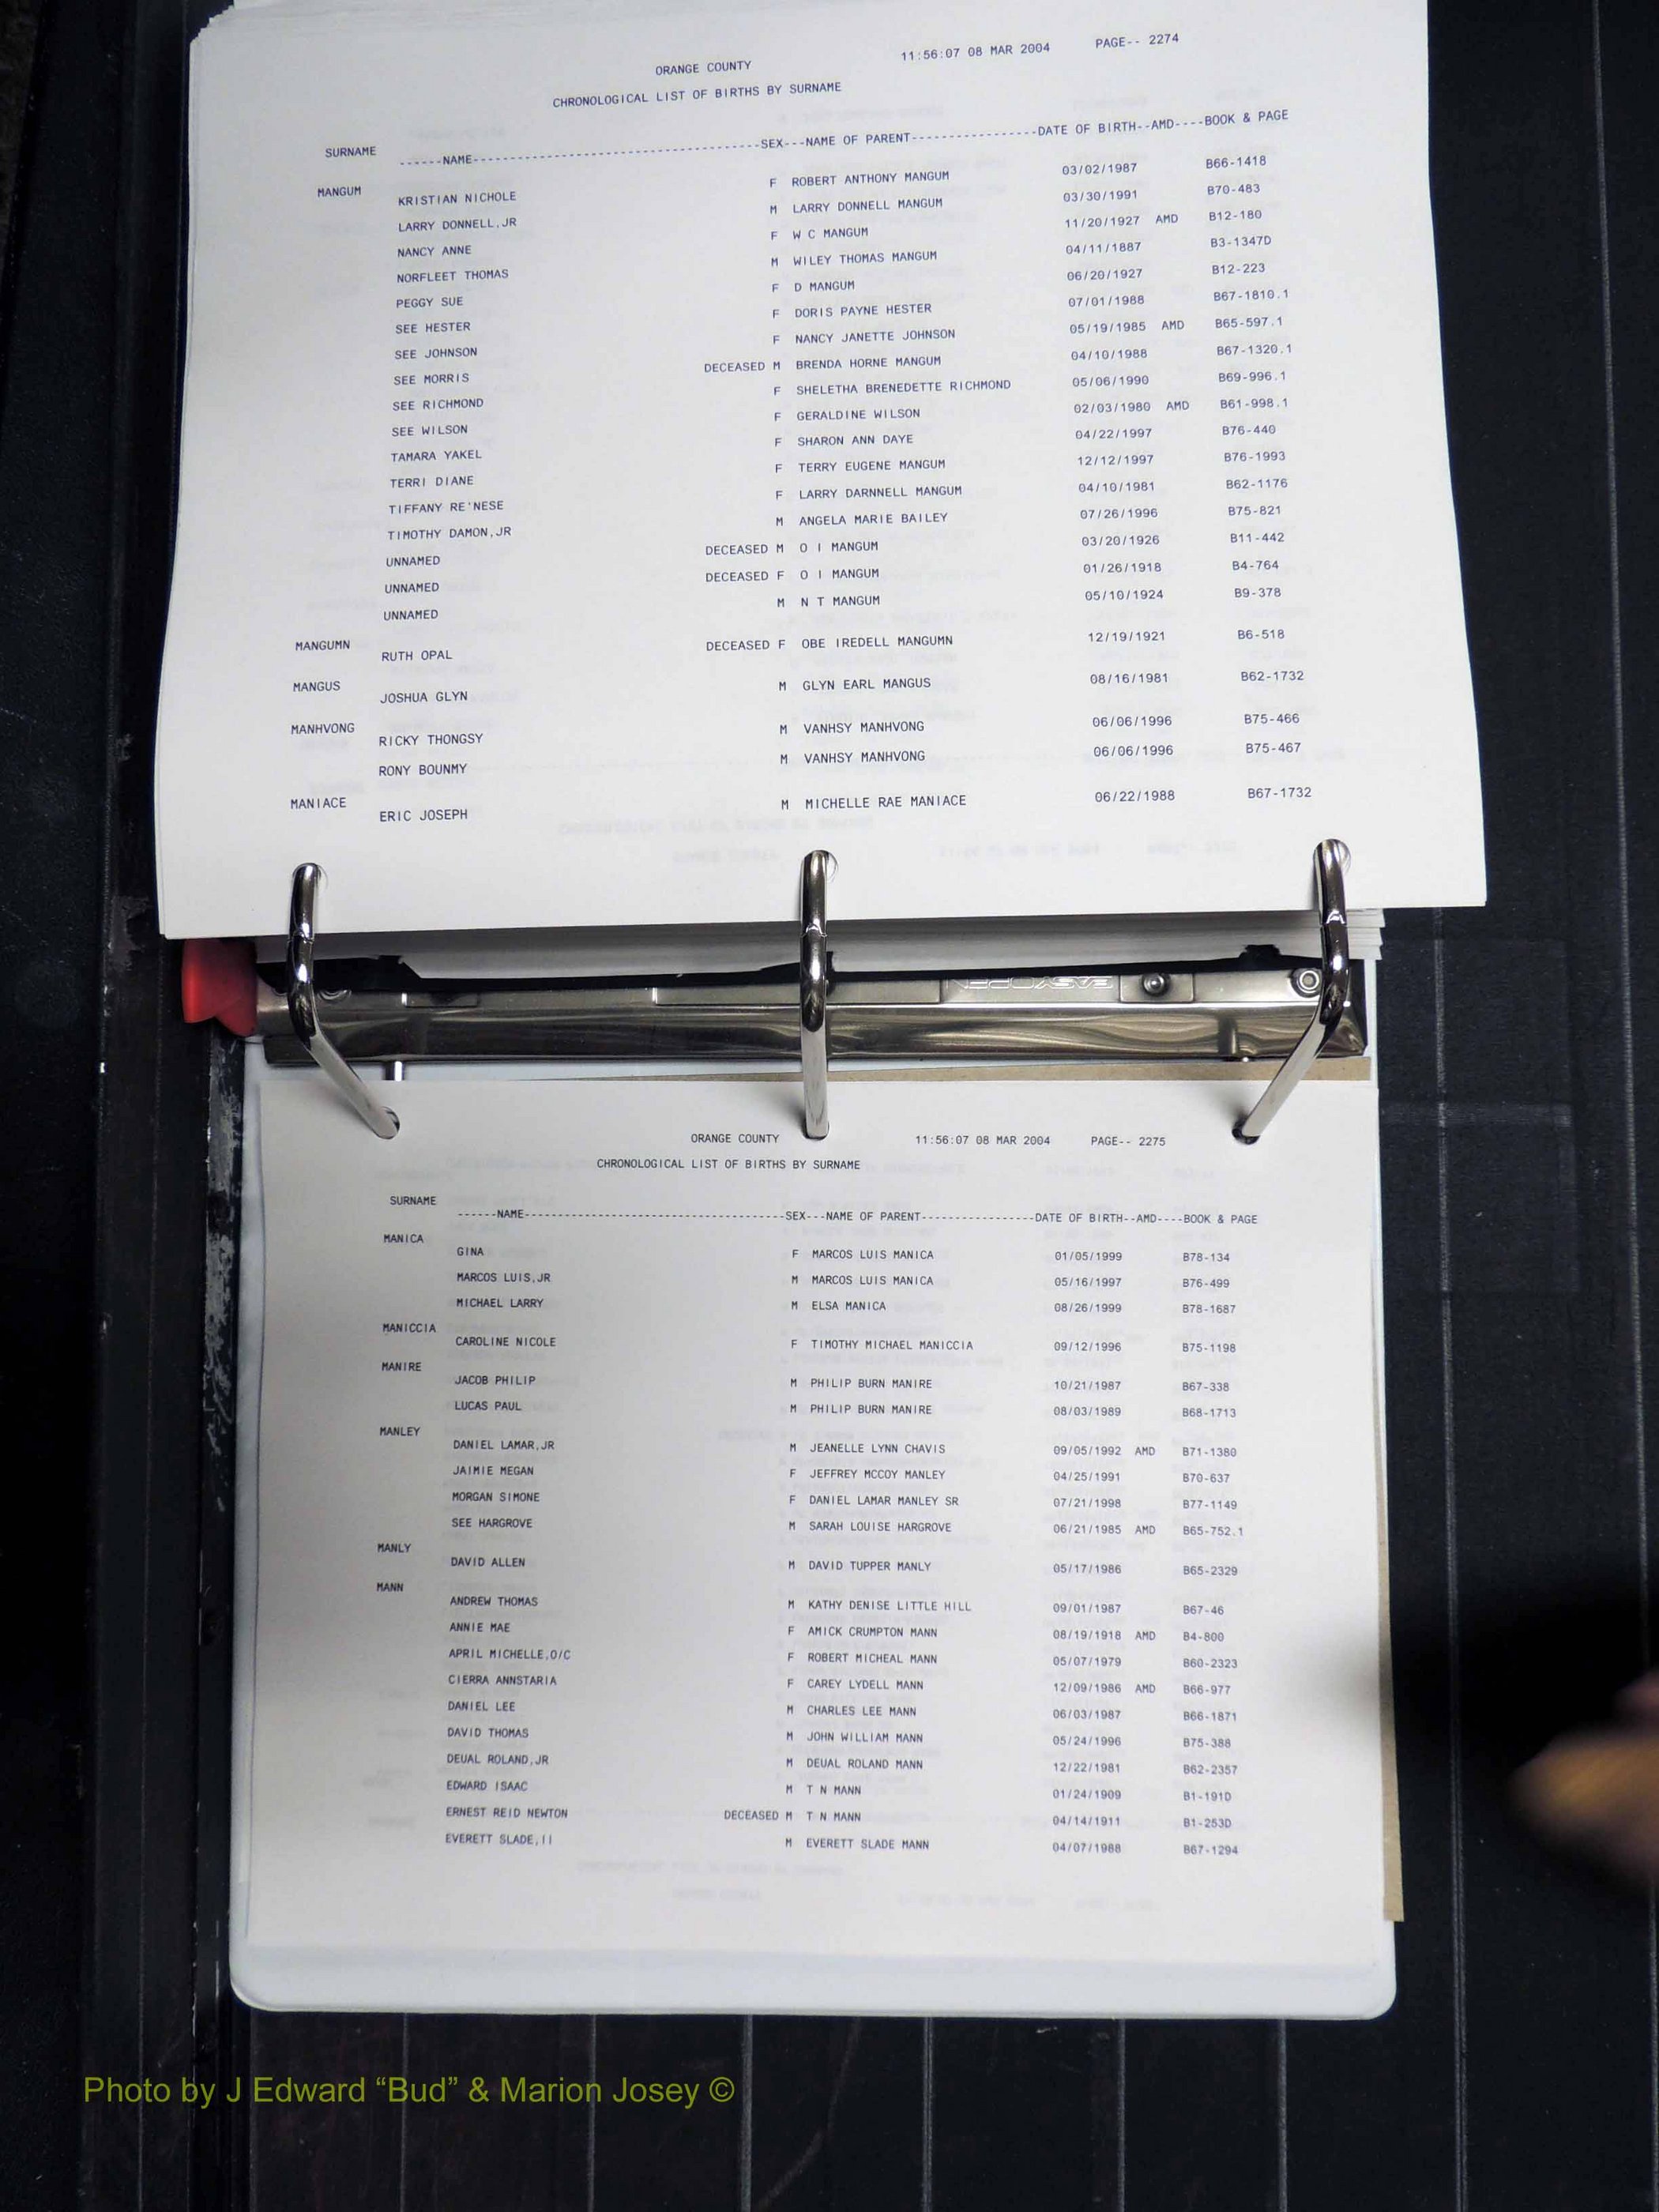 ORANGE COUNTY 11:56:07 08 MAR 2004 PAGE-- 2274
CHRONOLOGICAL LIST OF BIRTHS BY SURNAME
SURNAME
------NAME---------------------------------------SEX---NAME OF PARENT-----------------DATE OF BIRTH--AMD----BOOK & PAGE
MANGUM
KRISTIAN NICHOLE F ROBERT ANTHONY MANGUM 03/02/1987 B66-1418
LARRY DONNELL,JR M LARRY DONNELL MANGUM 03/30/1991 B70-483
NANCY ANNE F W C MANGUM 11/20/1927 AMD B12-180
NORFLEET THOMAS M WILEY THOMAS MANGUM 04/11/1887 B3-1347D
PEGGY SUE F D MANGUM 06/20/1927 B12-223
SEE HESTER F DORIS PAYNE HESTER 07/01/1988 B67-1810.1
SEE JOHNSON F NANCY JANETTE JOHNSON 05/19/1985 AMD B65-597.1
SEE MORRIS DECEASED M BRENDA HORNE MANGUM 04/10/1988 B67-1320.1
SEE RICHMOND F SHELETHA BRENEDETTE RICHMOND 05/06/1990 B69-996.1
SEE WILSON F GERALDINE WILSON 02/03/1980 AMD B61-998.1
TAMARA YAKEL F SHARON ANN DAYE 04/22/1997 B76-440
TERRI DIANE F TERRY EUGENE MANGUM 12/12/1997 B76-1993
TIFFANY RE'NESE F LARRY DARNNELL MANGUM 04/10/1981 B62-1176
TIMOTHY DAMON,JR M ANGELA MARIE BAILEY 07/26/1996 B75-821
UNNAMED DECEASED M O I MANGUM 03/20/1926 B11-442
UNNAMED DECEASED F O I MANGUM 01/26/1918 B4-764
UNNAMED M N T MANGUM 05/10/1924 B9-378
MANGUMN
RUTH OPAL DECEASED F OBE IREDELL MANGUMN 12/19/1921 B6-518
MANGUS
JOSHUA GLYN M GLYN EARL MANGUS 08/16/1981 B62-1732
MANHVONG
RICKY THONGSY M VANHSY MANHVONG 06/06/1996 B75-466
RONY BOUNMY M VANHSY MANHVONG 06/06/1996 B75-467
MANIACE
ERIC JOSEPH M MICHELLE RAE MANIACE 06/22/1988 B67-1732
EASYOPEN
ORANGE COUNTY 11:56:07 08 MAR 2004 PAGE-- 2275
CHRONOLOGICAL LIST OF BIRTHS BY SURNAME
SURNAME
------NAME---------------------------------------SEX---NAME OF PARENT-----------------DATE OF BIRTH--AMD----BOOK & PAGE
MANICA
GINA F MARCOS LUIS MANICA 01/05/1999 B78-134
MARCOS LUIS,JR M MARCOS LUIS MANICA 05/16/1997 B76-499
MICHAEL LARRY M ELSA MANICA 08/26/1999 B78-1687
MANICCIA
CAROLINE NICOLE F TIMOTHY MICHAEL MANICCIA 09/12/1996 B75-1198
MANIRE
JACOB PHILIP M PHILIP BURN MANIRE 10/21/1987 B67-338
LUCAS PAUL M PHILIP BURN MANIRE 08/03/1989 B68-1713
MANLEY
DANIEL LAMAR,JR M JEANELLE LYNN CHAVIS 09/05/1992 AMD B71-1380
JAIMIE MEGAN F JEFFREY MCCOY MANLEY 04/25/1991 B70-637
MORGAN SIMONE F DANIEL LAMAR MANLEY SR 07/21/1998 B77-1149
SEE HARGROVE M SARAH LOUISE HARGROVE 06/21/1985 AMD B65-752.1
MANLY
DAVID ALLEN M DAVID TUPPER MANLY 05/17/1986 B65-2329
MANN
ANDREW THOMAS M KATHY DENISE LITTLE HILL 09/01/1987 B67-46
ANNIE MAE F AMICK CRUMPTON MANN 08/19/1918 AMD B4-800
APRIL MICHELLE,O/C F ROBERT MICHEAL MANN 05/07/1979 B60-2323
CIERRA ANNSTARIA F CAREY LYDELL MANN 12/09/1986 AMD B66-977
DANIEL LEE M CHARLES LEE MANN 06/03/1987 B66-1871
DAVID THOMAS M JOHN WILLIAM MANN 05/24/1996 B75-388
DEUAL ROLAND,JR M DEUAL ROLAND MANN 12/22/1981 B62-2357
EDWARD ISAAC M T N MANN 01/24/1909 B1-191D
ERNEST REID NEWTON DECEASED M T N MANN 04/14/1911 B1-253D
EVERETT SLADE,II M EVERETT SLADE MANN 04/07/1988 B67-1294
Photo by J Edward “Bud” & Marion Josey ©